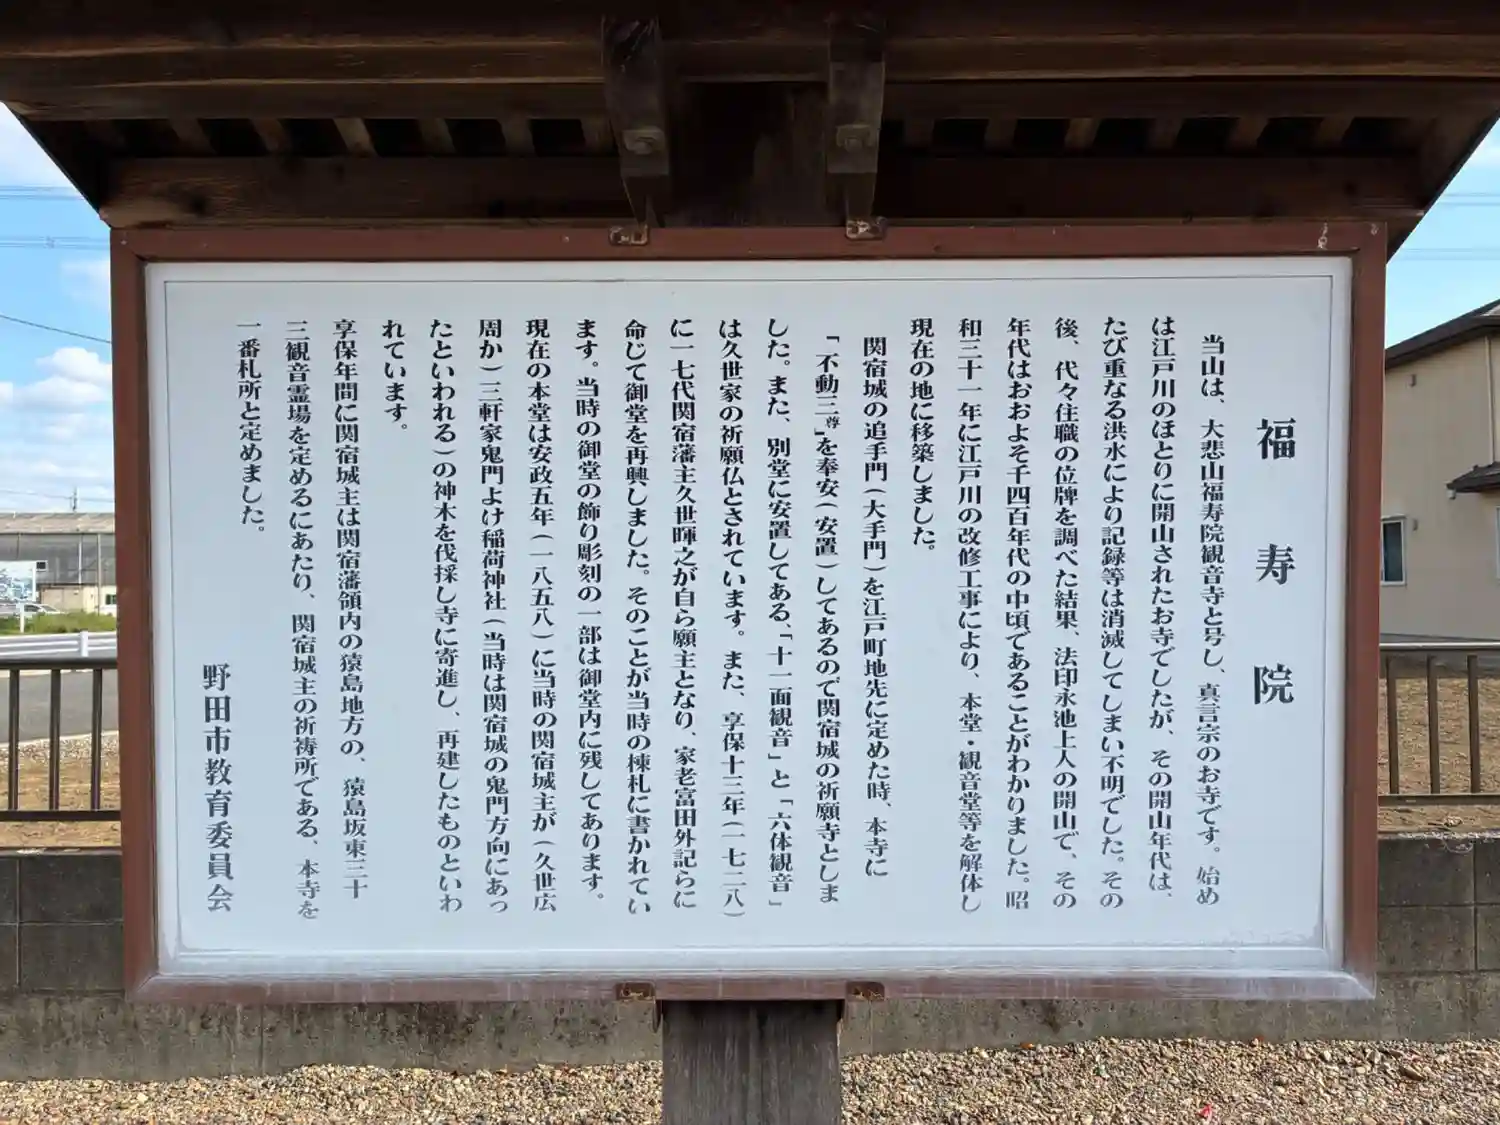 福寿院
当山は、大悲山福寿院観音寺と号し、真言宗のお寺です。始め
は江戸川のほとりに開山されたお寺でしたが、その開山年代は、
たび重なる洪水により記録等は消滅してしまい不明でした。その
後、代々住職の位牌を調べた結果、法印永池上人の開山で、その
年代はおおよそ千四百年代の中頃であることがわかりました。昭
和三十一年に江戸川の改修工事により、本堂・観音堂等を解体し
現在の地に移築しました。
関宿城の追手門(大手門)を江戸町地先に定めた時、本寺に
「不動三尊」を奉安(安置)してあるので関宿城の祈願寺としま
した。また、別堂に安置してある、「十一面観音」と「六体観音」
は久世家の祈願仏とされています。また、享保十三年(一七二八)
に一七代関宿藩主久世暉之が自ら願主となり、家老富田外記らに
命じて御堂を再興しました。そのことが当時の棟札に書かれてい
ます。当時の御堂の飾り彫刻の一部は御堂内に残してあります。
現在の本堂は安政五年(一八五八)に当時の関宿城主が(久世広
周か)三軒家鬼門よけ稲荷神社(当時は関宿城の鬼門方向にあっ
たといわれる)の神木を伐採し寺に寄進し、再建したものといわ
れています。
享保年間に関宿城主は関宿藩領内の猿島地方の、猿島坂東三十
三観音霊場を定めるにあたり、関宿城主の祈祷所である、本寺を
一番札所と定めました。
野田市教育委員会